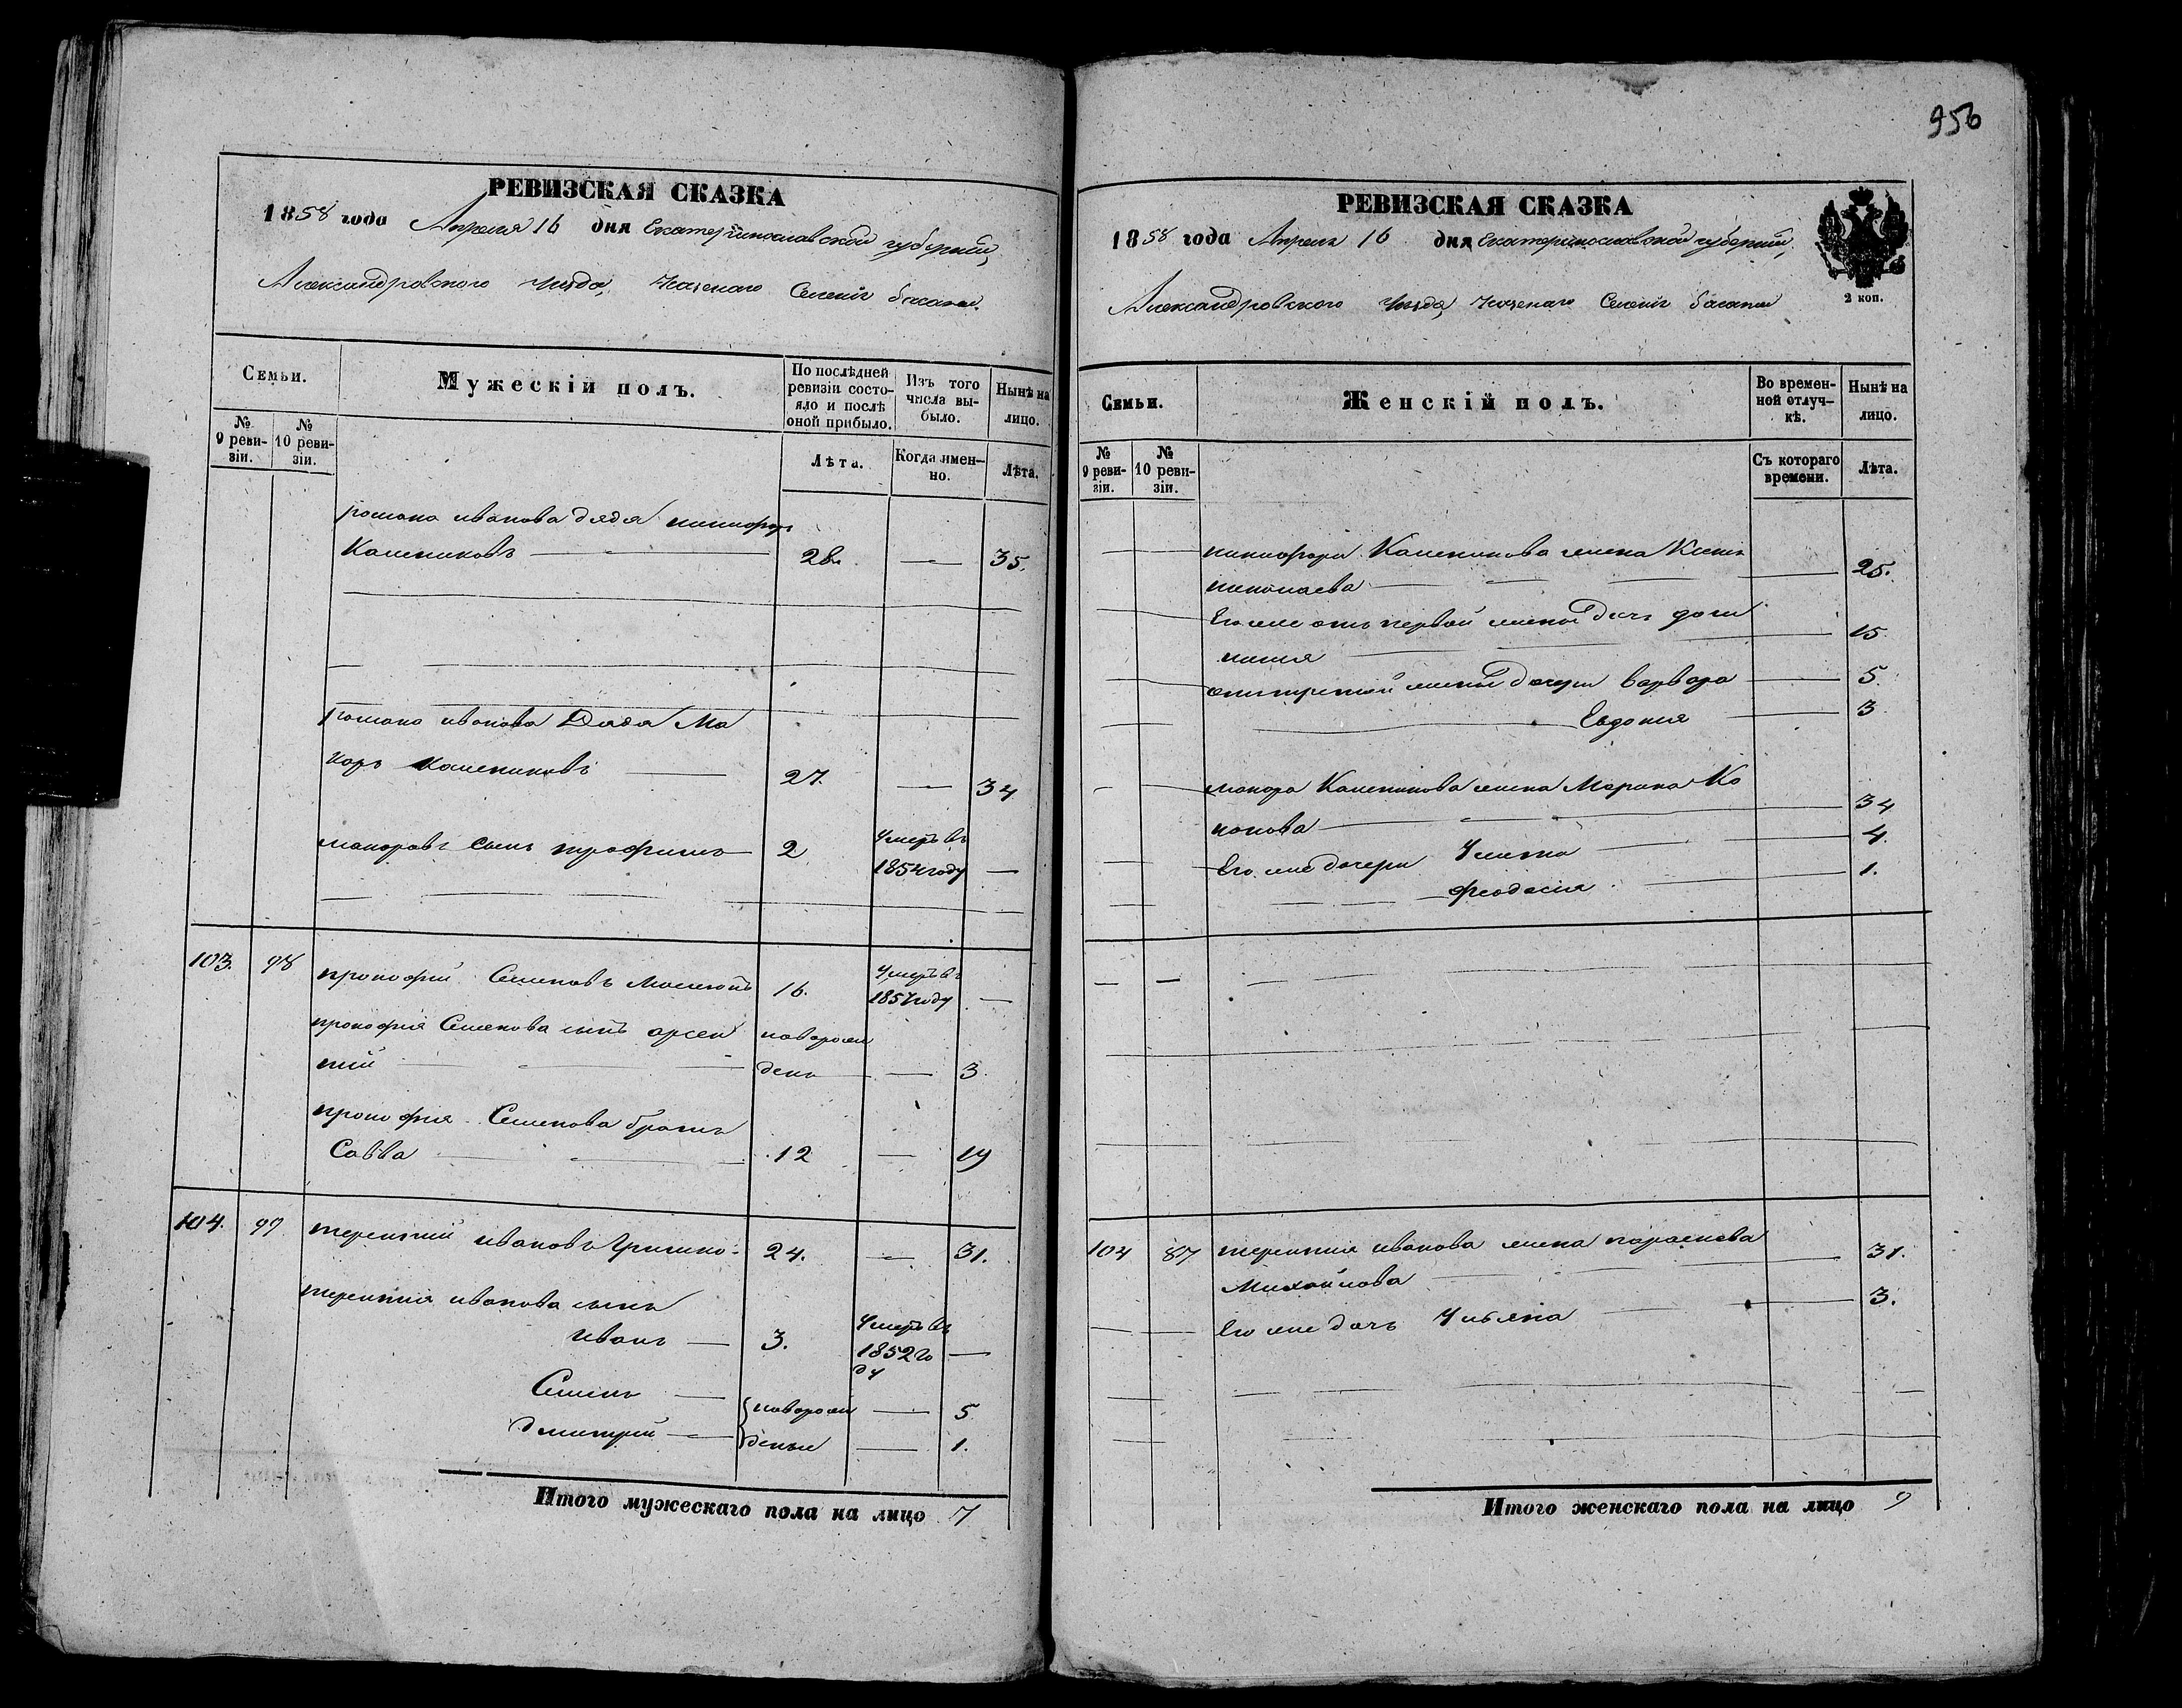 956
РЕВИЗСКАЯ СКАЗКА
1858 года Апреля 16 дня Екатеринославской губернии,
Александровского уезда, Казенаго Селенія басани.
Семьи.
Мужескій полъ.
По послѣдней ревизіи состояло и послѣ оной прибыло.
Изъ того числа выбыло.
Нынѣ на лицо.
№ 9 ревизіи.
№ 10 ревизіи.
Лѣта.
Когда именно.
Лѣта.
романа иванова дядя никифоръ
Калениковъ 28. — 35.
романа иванова Дядя Ма
каръ Калениковъ 27. — 34
макаровъ сынъ трофимъ 2 Умеръ въ
1854 году —
103. 98 прокофий Семеновъ 16. Умеръ въ
1857 году —
прокофия Семенова сынъ арсен новорож
тий день — 3.
прокофия Семенова братъ
Савва 12 — 19
104. 99 терентий ивановъ Гришко 24. — 31.
терентия иванова сынъ
иванъ 3. Умеръ въ
1852 го
ду —
Семенъ новорож — 5
дмитрий деные — 1.
Итого мужескаго пола на лицо 7
РЕВИЗСКАЯ СКАЗКА
1858 года Апреля 16 дня Екатеринославской губернии,
Александровского уезда, Казенаго Селенія басани
2 коп.
Семьи.
Женскій полъ.
Во временной отлучкѣ.
Нынѣ на лицо.
№ 9 ревизіи.
№ 10 ревизіи.
Съ котораго времени.
Лѣта.
никифора Каленикова жена
николаева 25.
Его же отъ первой жены дочь дом
никия 15.
отъ третей жены дочери варвара 5.
Евдокия 3
макара Каленикова жена Марина Ко
нонова 34
Его же дочери Улита 4.
феодосия 1.
104 87 терентия иванова жена параскева
Михайлова 31.
Его же дочь Ульяна 3.
Итого женскаго пола на лицо 9